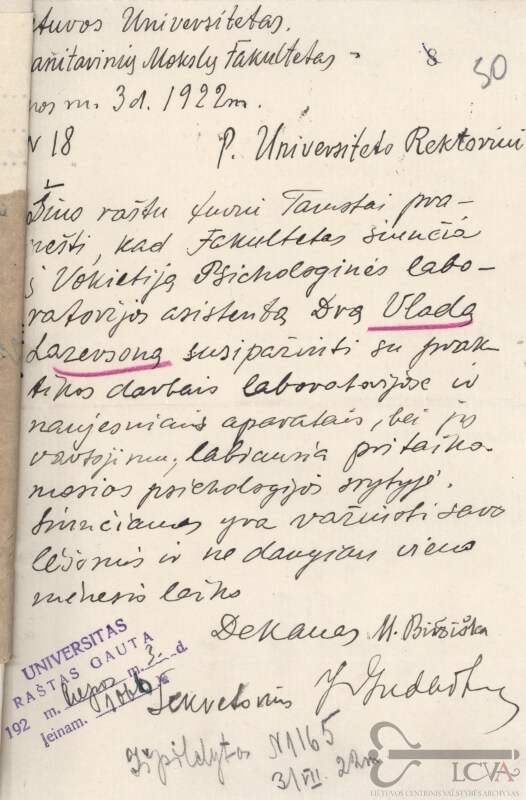 tuvos Universitetas.
anitarinių Mokslų Fakultetas
8
50
3 d. 1922 m.
N 18
P. Universiteto Rektoriui
Šiuo raštu turiu Tamstai pra-
nešti, kad Fakultetas siunčia
į Vokietiją Psichologinės labo-
ratorijos asistentą Drą Vladą
Lazersoną susipažinti su prak
tikos darbais laboratorijose ir
naujesniais aparatais, bei jų
vartojimu, labiausia pritaiko
mosios psichologijos srytyje.
Siunčiamas yra važiuoti savo
lėšomis ir ne daugiau vieno
mėnesio laiko
Dekanas M. Biržiška
Sekretorius
UNIVERSITAS
RAŠTAS GAUTA
192 m. m. 3. d.
Įeinam. 1006 №
Išpildytas N1165
31/VII. 22 m
LCVA
LIETUVOS CENTRINIS VALSTYBĖS ARCHYVAS